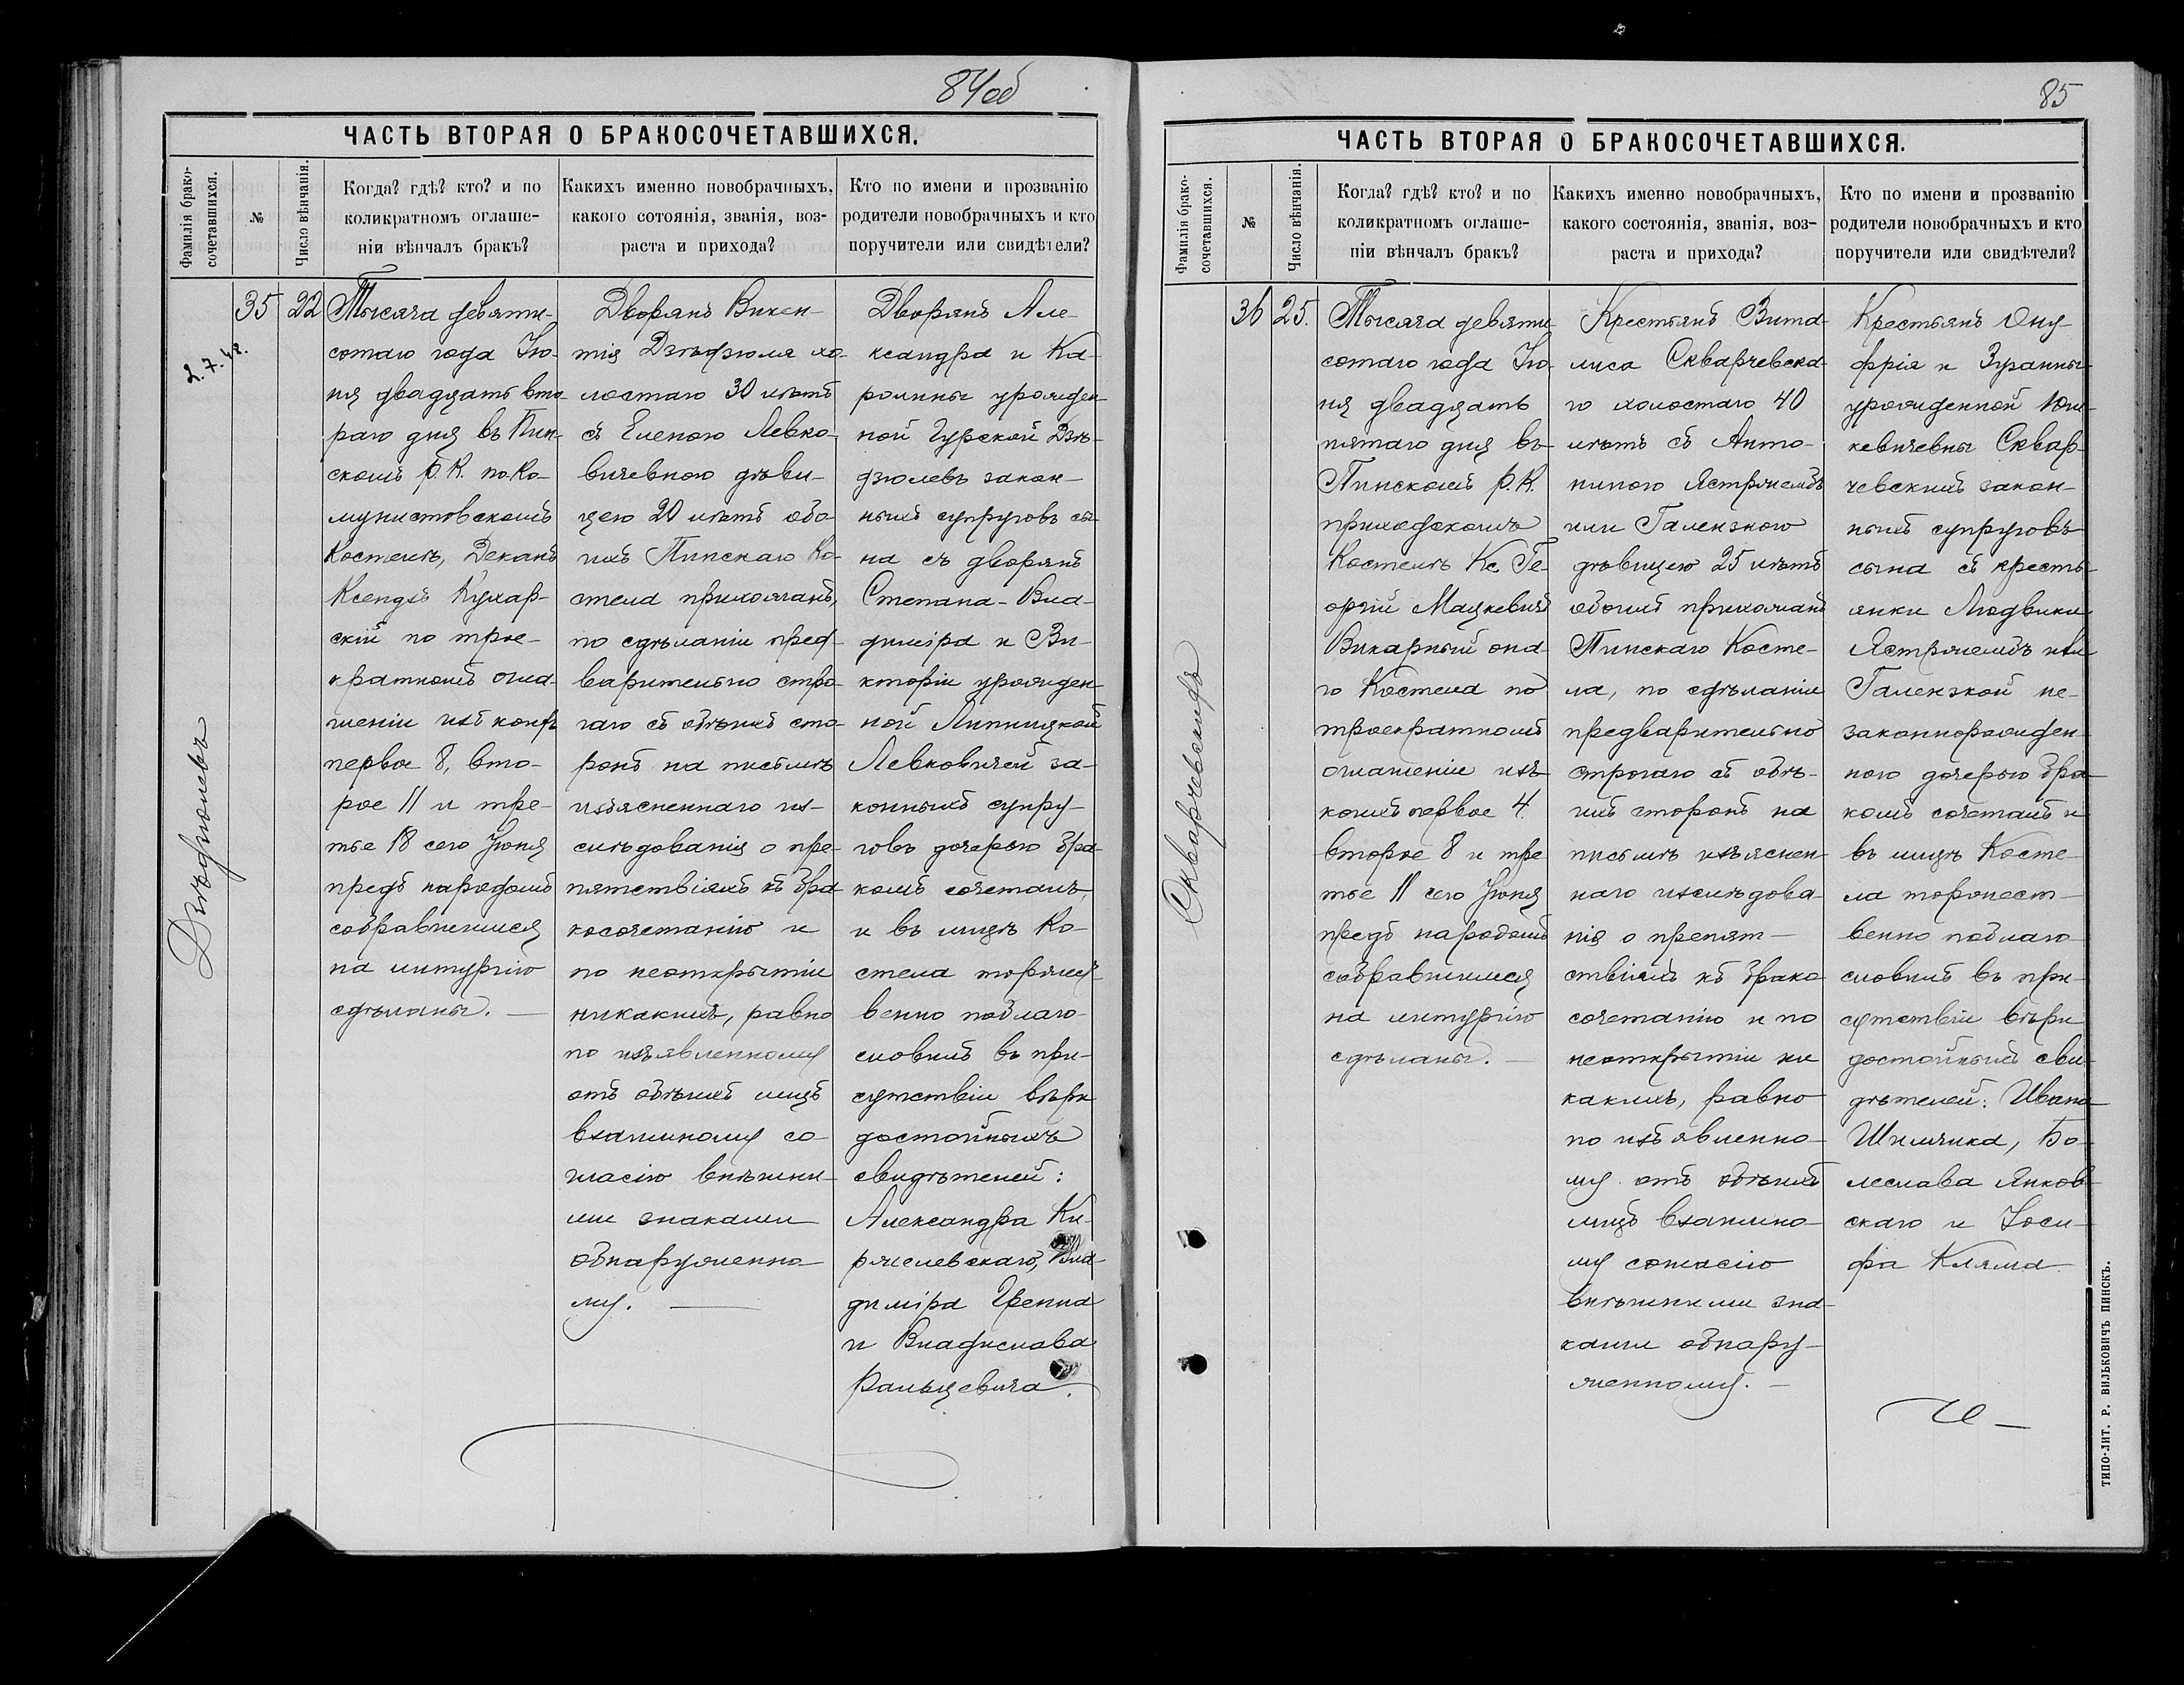 84об
ЧАСТЬ ВТОРАЯ О БРАКОСОЧЕТАВШИХСЯ.
Фамилія брако-
сочетавшихся.
№
Число вѣнчанія.
Когда? гдѣ? кто? и по
коликратномъ оглаше-
ніи вѣнчалъ бракъ?
Какихъ именно новобрачныхъ,
какого сотоянія, званія, воз-
раста и прихода?
Кто по имени и прозванію
родители новобрачныхъ и кто
поручители или свидѣтели?
2.7.42.
Дзѣдзюлевъ
35
22
Тысяча девяти-
сотаго года Ію-
ня двадцать вто-
раго дня въ Пин-
скомъ Р. К. по-Ко-
мунистовскомъ
Костелѣ, Деканъ
Ксендзъ Кухар-
скій по трое-
кратномъ огла-
шеніи изъ коихъ
первое 8, вто-
рое 11 и тре-
тье 18 сего Іюня
предъ народомъ
собравшимся
на литургію
сдѣланы. —
Дворянъ Викен-
тія Дзѣдзюля хо-
лостаго 30 лѣтъ
съ Еленою Левко-
вичевною дѣви-
цею 20 лѣтъ обо-
ихъ Пинскаго Ко-
стела прихожанъ,
по сдѣланіи пред-
варительно стро-
гаго съ обѣихъ сто-
ронъ на письмѣ
изъясненнаго из-
слѣдованія о пре-
пятствіяхъ къ бра-
косочетанію и
по неоткрытіи
никакихъ, равно
по изъявленному
отъ обѣихъ лицъ
взаимному со-
гласію внѣшни-
ми знаками
обнаруженно-
му. —
Дворянъ Але-
ксандра и Ка-
ролины урожден-
ной Гурской Дзѣ-
дзюлевъ закон-
ныхъ супруговъ сы-
на съ дворянъ
Степана-Вла-
диміра и Ви-
кторіи урожден-
ной Липницкой
Левковичей за-
конныхъ супру-
говъ дочерью бра-
комъ сочеталъ
и въ лицѣ Ко-
стела торжест-
венно поблаго-
словилъ въ при-
сутствіи вѣро-
достойныхъ
свидѣтелей:
Александра Ки-
ржелевскаго, Вла-
диміра Гренца
и Владислава
Ральцевича.
85
ЧАСТЬ ВТОРАЯ О БРАКОСОЧЕТАВШИХСЯ.
Фамилія брако-
сочетавшихся.
№
Число вѣнчанія.
Когда? гдѣ? кто? и по
коликратномъ оглаше-
ніи вѣнчалъ бракъ?
Какихъ именно новобрачныхъ,
какого состоянія, званія, воз-
раста и прихода?
Кто по имени и прозванію
родители новобрачныхъ и кто
поручители или свидѣтели?
Скварчевскихъ
36
25.
Тысяча девяти-
сотаго года Ію-
ня двадцать
пятаго дня въ
Пинскомъ Р. К.
приходскомъ
Костелѣ Кс. Ге-
оргій Мацкевичъ
Викарный она-
го Костела по
троекратномъ
оглашеніи изъ
коихъ первое 4.
второе 8 и тре
тье 11 сего Іюня
предъ народомъ
собравшимся
на литургію
сдѣланы. —
Крестьянъ Вита-
лиса Скварчевска-
го холостаго 40
лѣтъ съ Анто-
ниною Ястржембъ
или Галензною
дѣвицею 25 лѣтъ
обоихъ прихожанъ
Пинскаго Косте-
ла, по сдѣланіи
предварительно
строгаго съ обѣ-
ихъ сторонъ на
письмѣ изъяснен-
наго изслѣдова-
нія о препят-
ствіяхъ къ брако
сочетанію и по
неоткрытіи ни
какихъ, равно
по изъявленно-
му отъ обѣихъ
лицъ взаимно-
му согласію
внѣшними зна-
ками обнару-
женному. —
Крестьянъ Ону-
фрія и Зузанны
урожденной Юш-
кевичевны Сквар-
чевскихъ закон-
ныхъ супруговъ
сына съ кресть-
янки Людвики
Ястржембъ или
Галензкой не-
законнорожден-
ною дочерью бра-
комъ сочеталъ и
въ лицѣ Косте-
ла торжест-
венно поблаго-
словилъ въ при-
сутствіи вѣро
достойныхъ сви-
дѣтелей: Ивана
Шимчика, Бо-
леслава Янков-
скаго и Іоси-
фа Кляма
ТИПО-ЛИТ. Р. ВИЛЬКОВИЧЪ ПИНСКЪ.